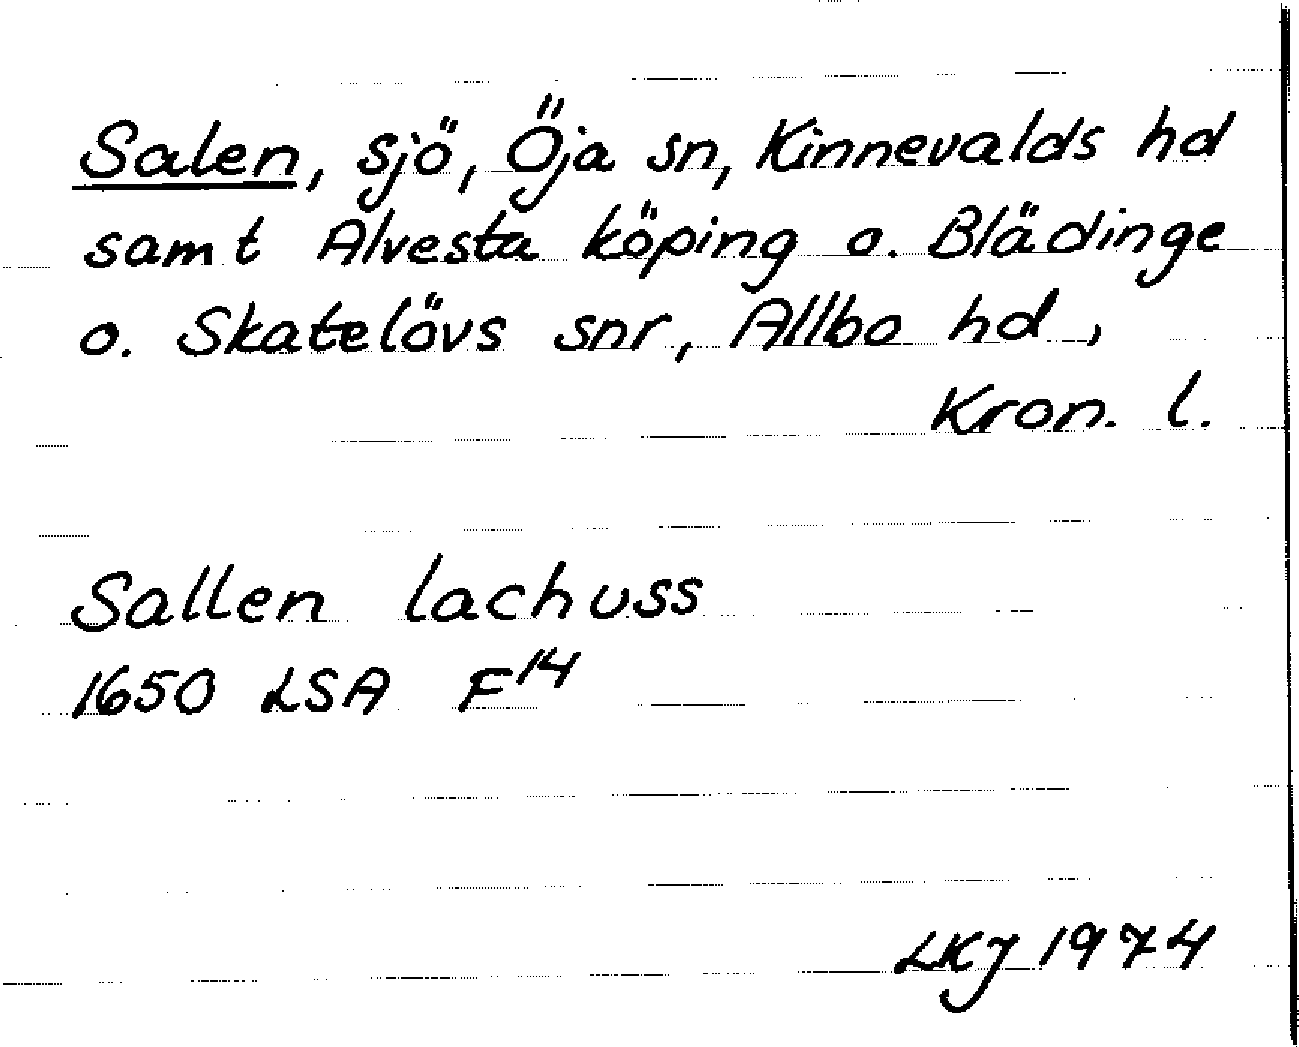 Salen, sjö, Öja sn, Kinnevalds hd
samt Alvesta köping o. Blädinge
o. Skatelövs snr, Allbo hd,
Kron. l.
Sallen lachuss
1650 LSA F14
LKJ 1974